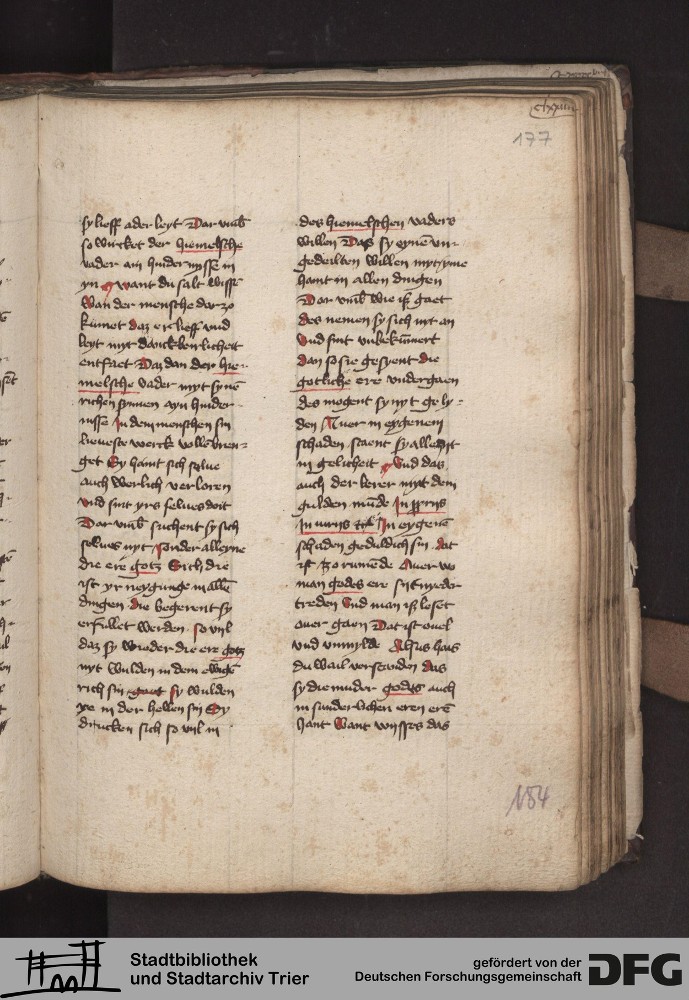 clxxiiii
177
sy lieff ader leyt Dar vmb
so wircket der hiemelsche
vader ain hindernisse in
yn want du salt wissē
Wan der mensche dar zo
kumet daz er lieff vnd
leyt myt danckberlicheit
entfaet Daz dan der hie-
melsche vader myt synē
richen synnen ayn hinder
nisse in dem menschen sin
lieueste werck vollebren-
get Sy haint sich selue
auch werlich verloren
vnd sint yrs selues doit
Dar vmb suchent sy sich
selues nyt sonder alleyne
die ere gotz Sich die
ist yr neygunge in allē
dingen die begerent sy
erfullet werden so vil
daz sy wieder die ere gotz
nyt wulden in dem ewigē
rich sin gaet sy wulden
ye in der hellen sin Sy
drucken sich so vil in
des hiemelschen vaders
willen Das sy eynē vn-
gedeilten willen myt yme
haint in allen dingen
Dar vmb wie iß gaet
des nemen sy sich nyt an
Vnd sint vnbekummert
dan so sie gesyent die
gotliche ere vndergaen
des mogent sy nyt gely-
den Auer in eygenem
schaden staent sy alle zijt
in gelicheit Vnd das
auch der lerer myt dem
gulden munde In pprijs
In eygenē
schaden geduldich sin dat
ist zo rumende Auer wo
man godes ere sijt nyder
treden Vnd man iß leset
ouer gaen Dat ist ouel
vnd vnmylde Alsus hais
du wail verstanden das
sy die muder godes auch
in sunderlichen eren erē
haint Want wijsses das
184
Stadtbibliothek
und Stadtarchiv Trier
gefördert von der
Deutschen Forschungsgemeinschaft
DFG